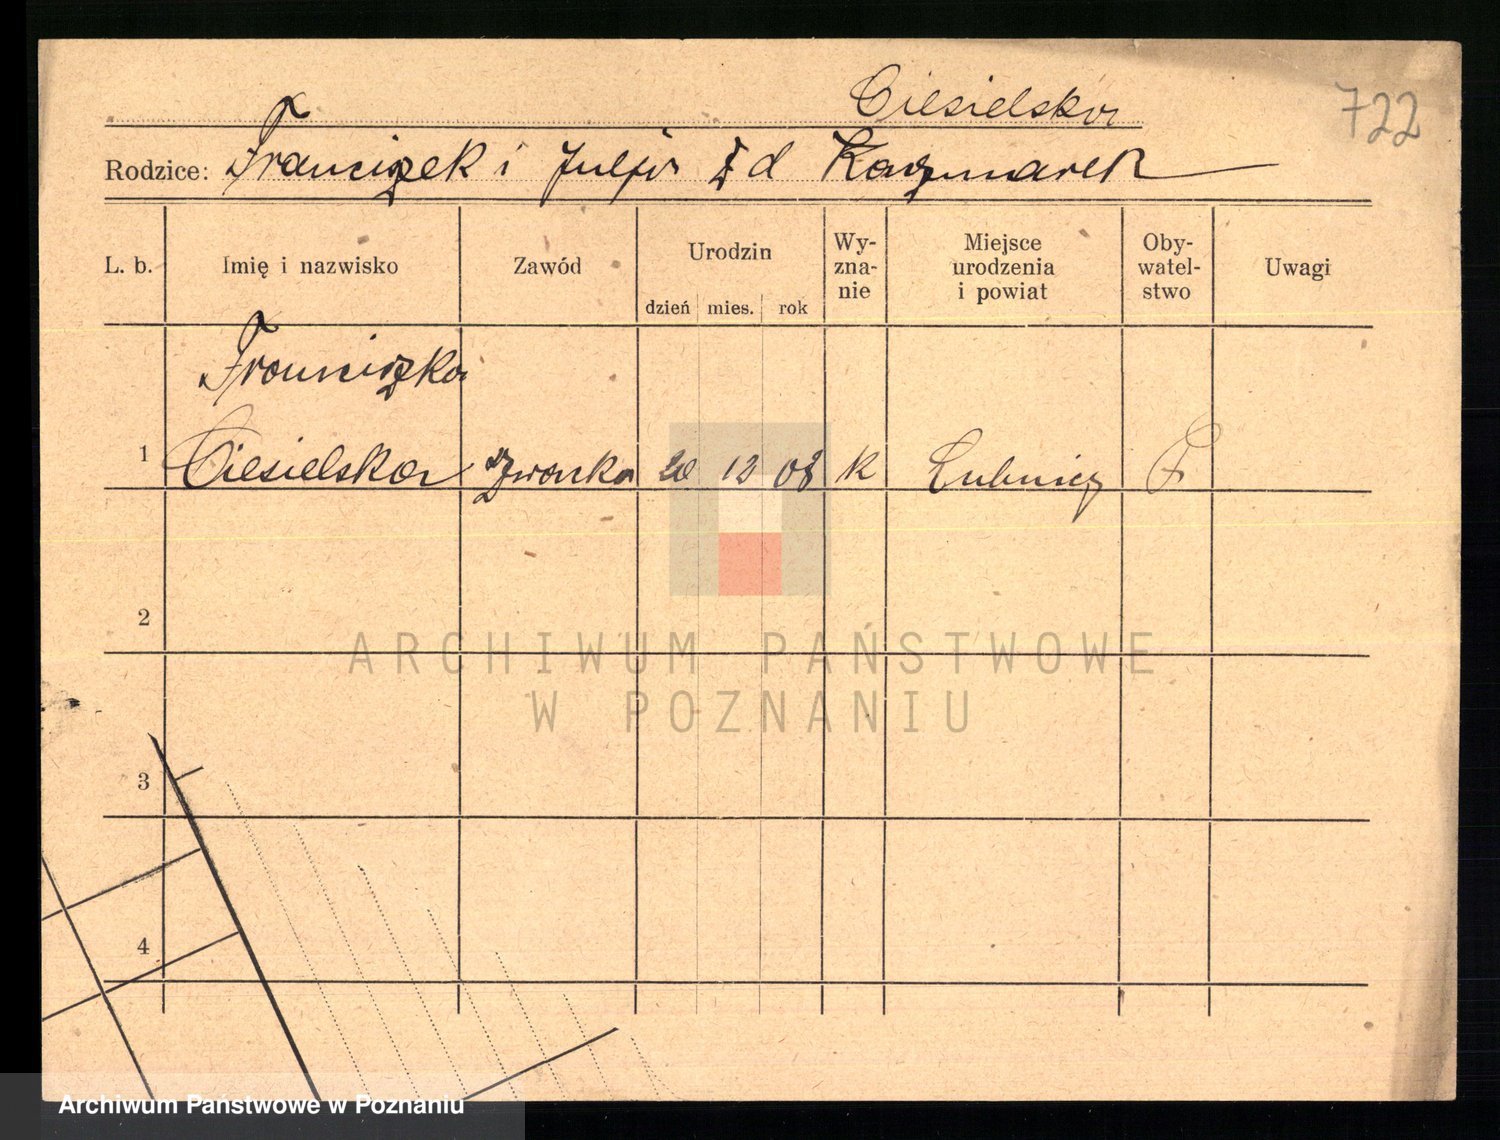 Ciesielska
722
Rodzice: Franciszek i Julja z d Kaczmarek
L. b.
Imię i nazwisko
Zawód
Urodzin
dzień mies. rok
Wy-
zna-
nie
Miejsce
urodzenia
i powiat
Oby-
watel-
stwo
Uwagi
Franciszka
1 Ciesielska 12 08 k P
2
3
4
ARCHIWUM PAŃSTWOWE
W POZNANIU
Archiwum Państwowe w Poznaniu